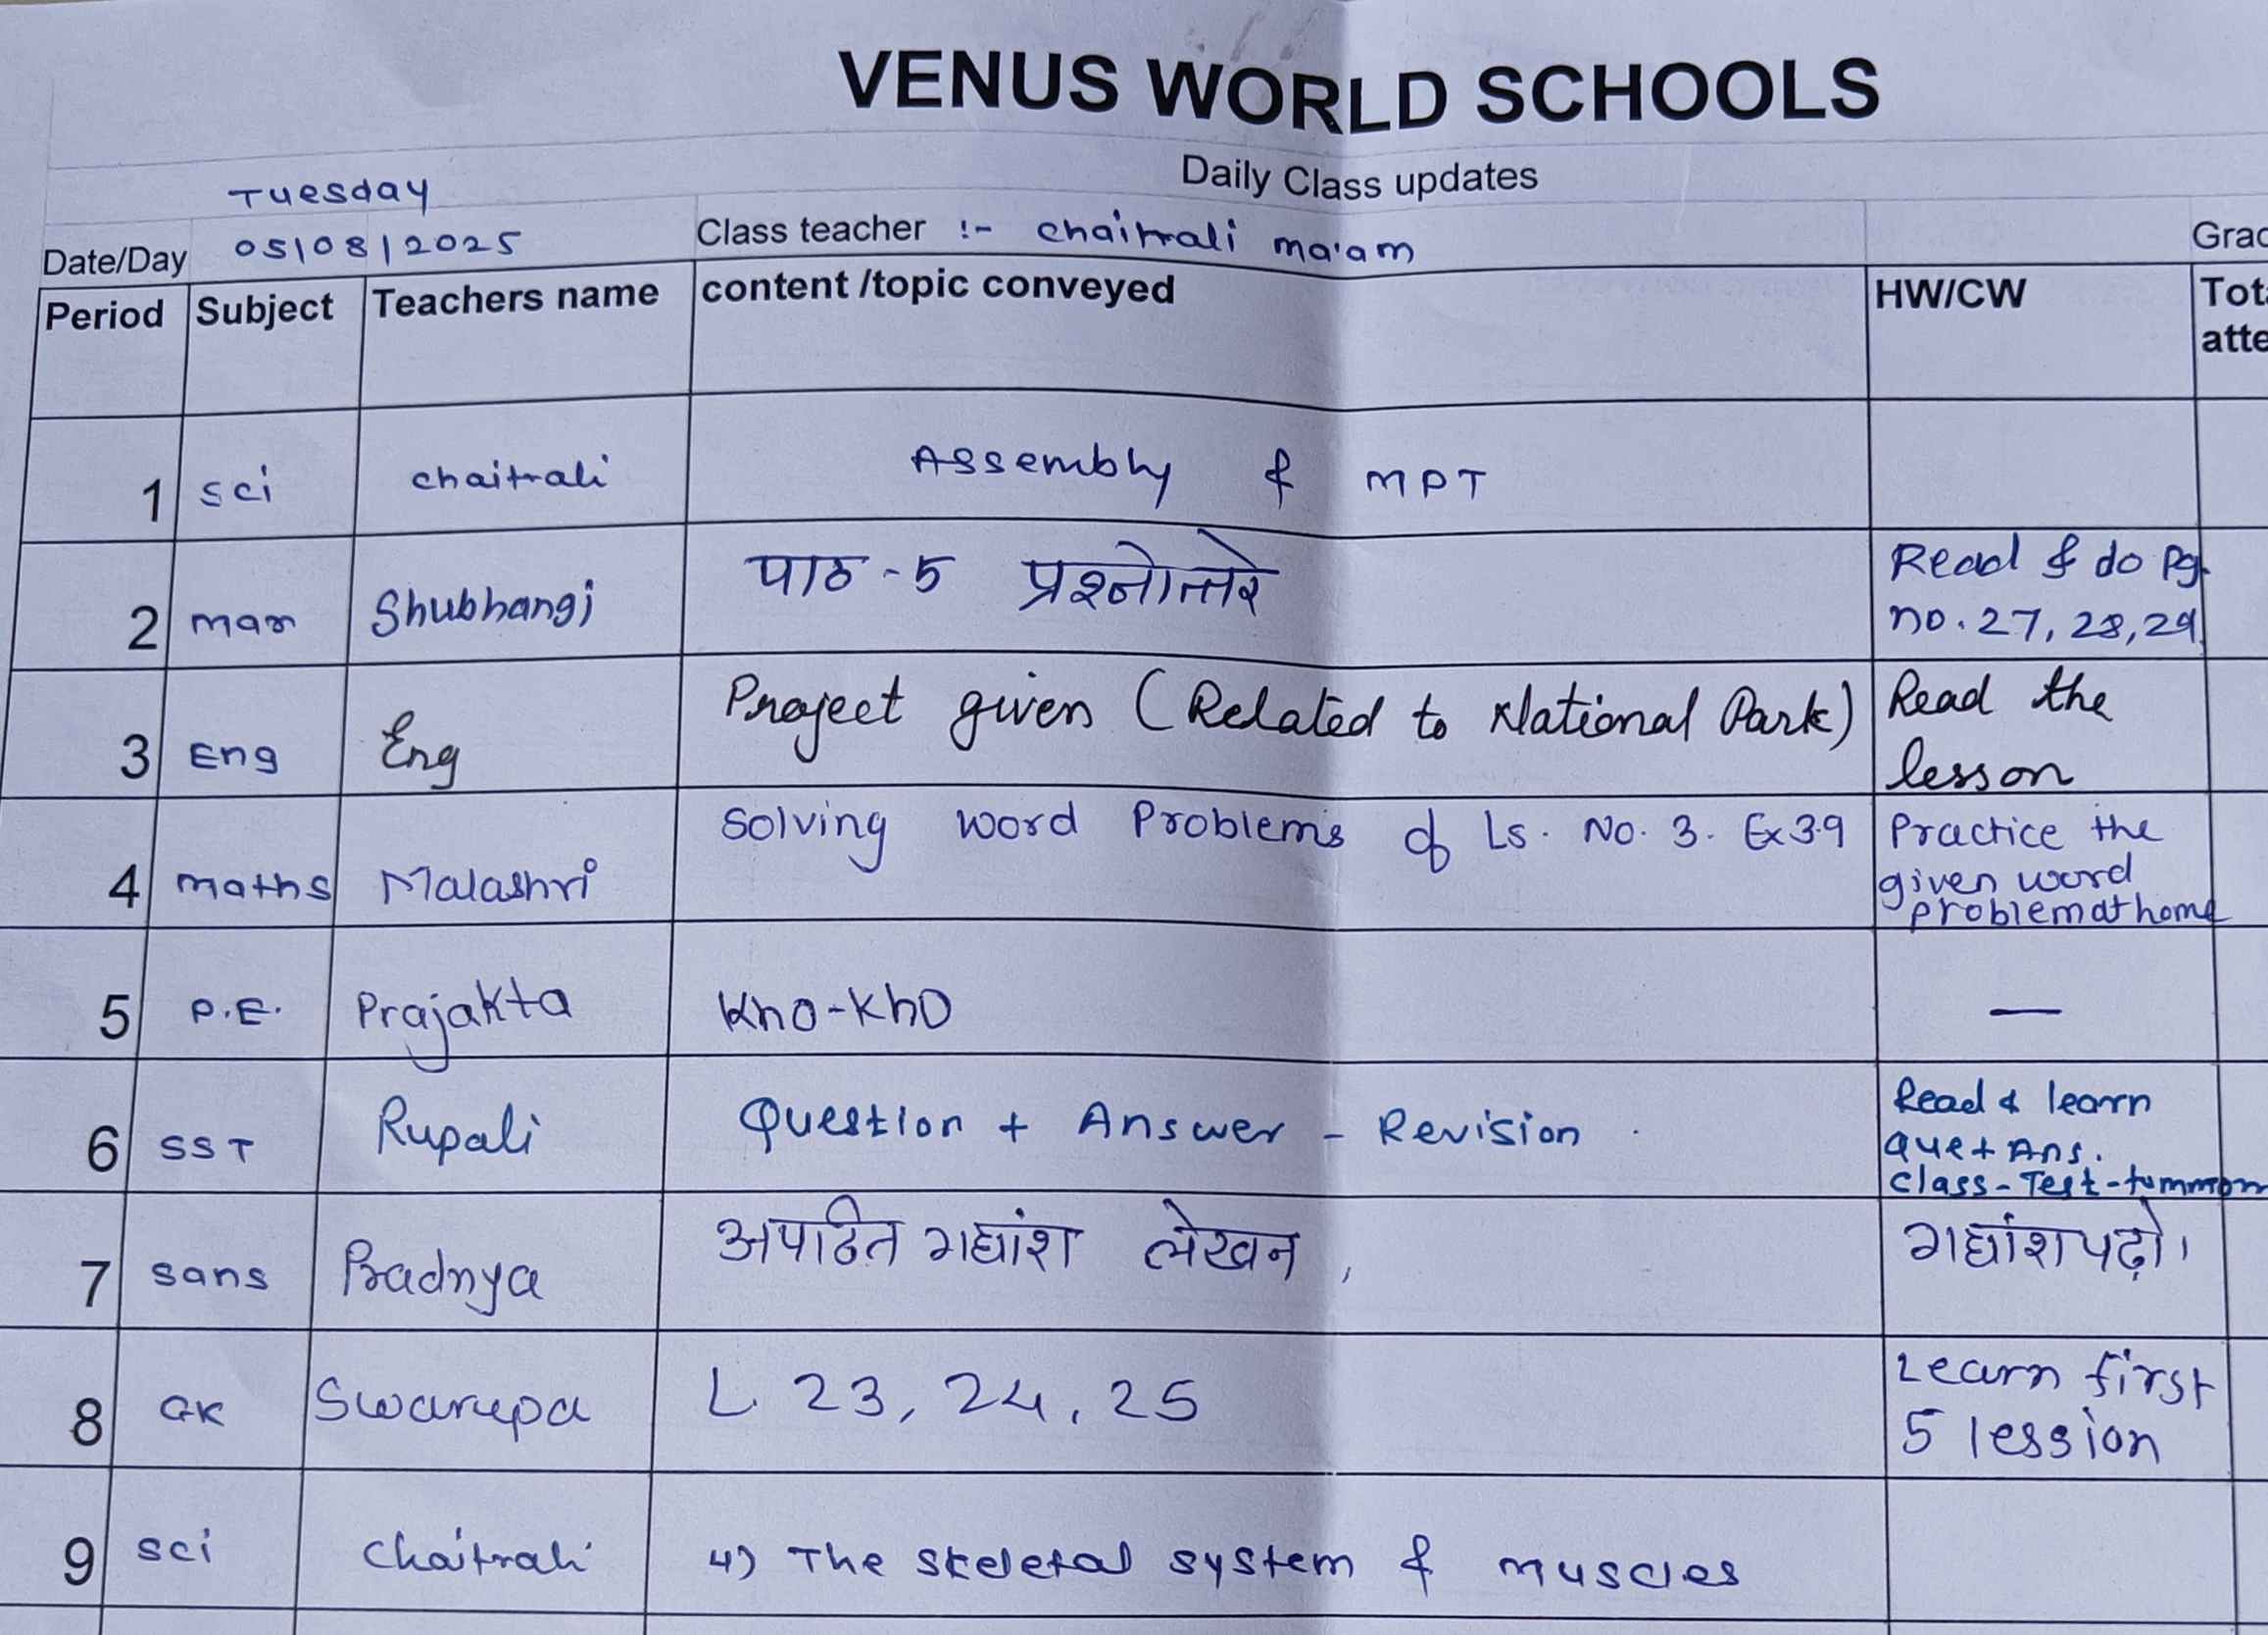 VENUS WORLD SCHOOLS
Daily Class updates
Tuesday
Date/Day 05/08/2025 Class teacher :- chaitrali ma'am Grad
Period Subject Teachers name content /topic conveyed HW/CW Tota
atte
1 sci chaitrali Assembly & MPT
2 mar Shubhangi पाठ - 5 प्रश्नोत्तरे Read & do Pg.
no. 27, 28, 29.
3 Eng Eng Project given (Related to National Park) Read the
lesson
4 maths Malashri Solving word Problems of Ls. No. 3. Ex 3.9 Practice the
given word
problem at home
5 P.E. Prajakta Kho-Kho —
6 SST Rupali Question + Answer - Revision . Read & learn
Que + Ans.
Class-Test-
7 sans Pradnya अपठित गद्यांश लेखन , गद्यांश पढ़ो।
8 GK Swarupa L 23, 24, 25 Learn first
5 lession
9 sci Chaitrali 4) The skeletal system & muscles